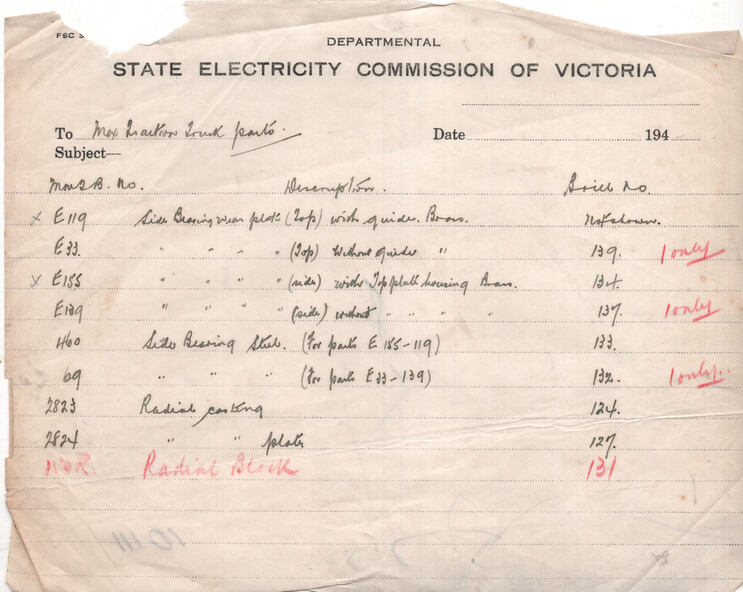 FSC
DEPARTMENTAL
STATE ELECTRICITY COMMISSION OF VICTORIA
To Max Traction Truck parts. Date 194
Subject—
M&M T.B. No. Description. Brill No.
x E119 Side Bearing wear plate (Top) with guide. Brass. Not shown.
E33. " " " " (Top) Without guide " 139. 1 only
x E155 " " " " (side) with Top plate housing Brass. 134.
E139 " " " " (side) without " " " " 137. 1 only
460 Side Bearing Steel. (For parts E155-119) 133.
69 " " " (For parts E33-139) 132. 1 only.
2823 Radial casting 124.
2824 " " plate 127.
Radial Block 131